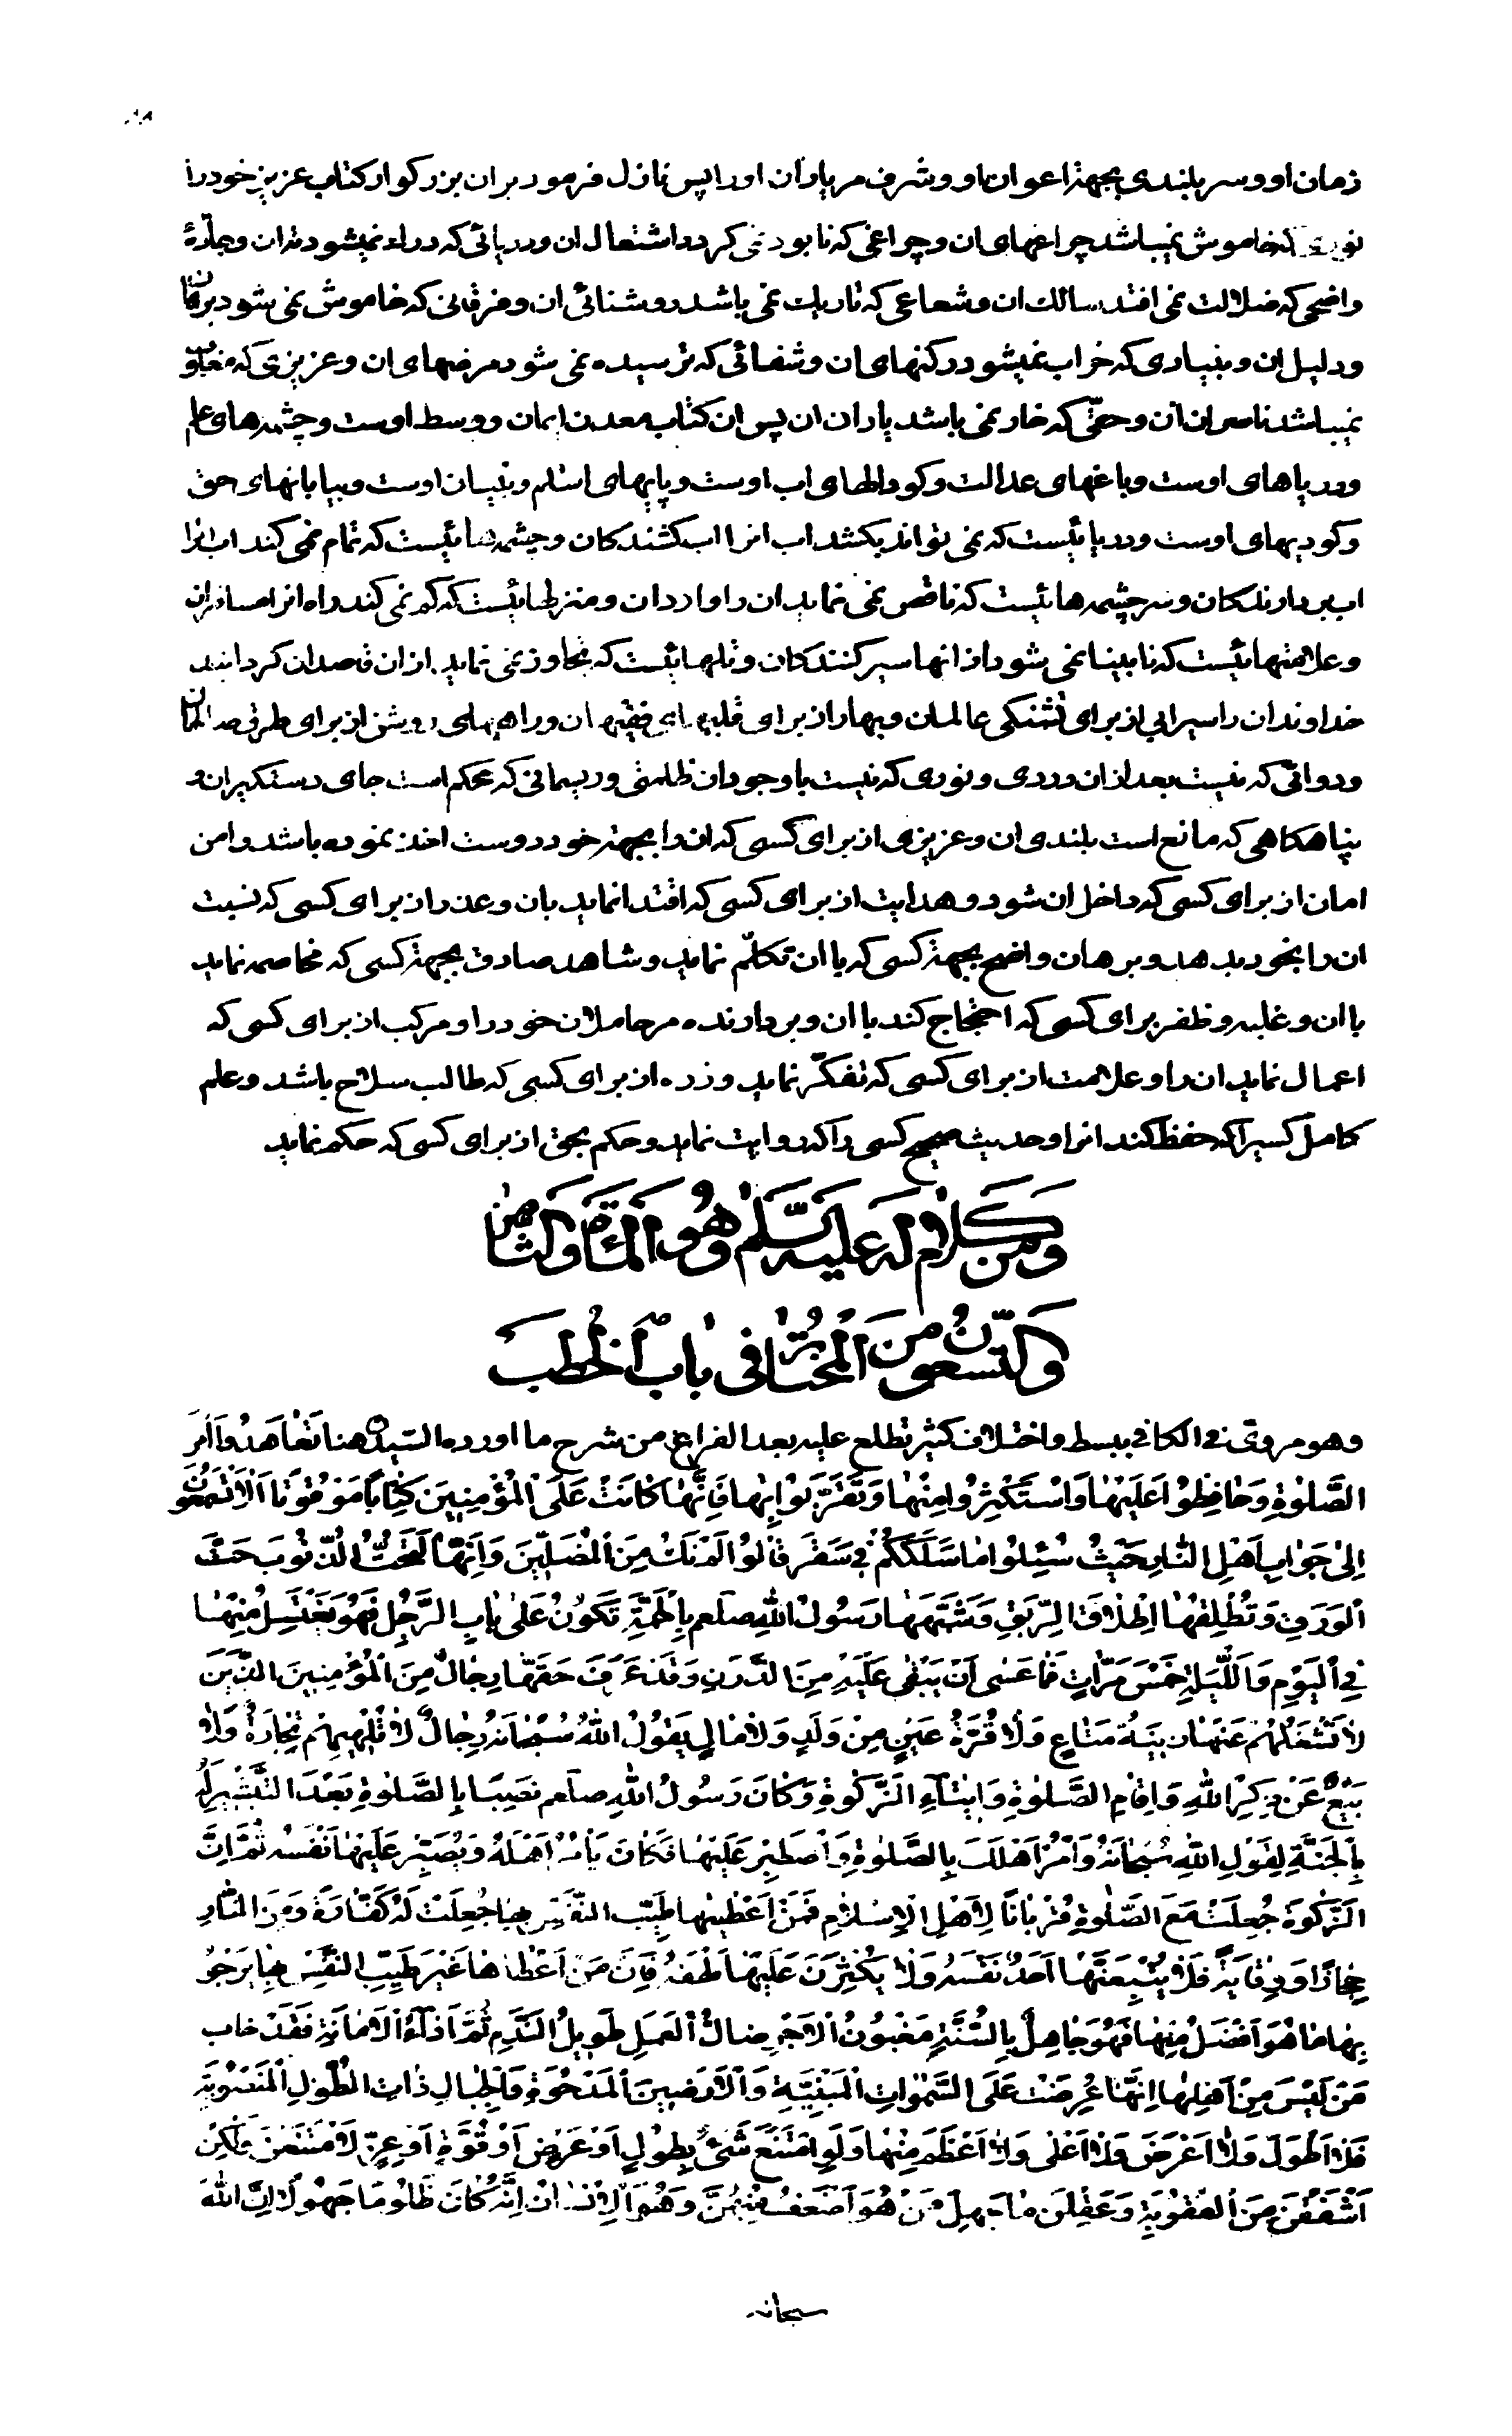 زمان او و سربلندی بجهة اعوان او و شرف مر یاران او را پس نازل فرمود بر ان بزرکوار کتاب عزیز خود را
نوری که خاموش نمیباشد چراغهای ان و چراغی که نابود نمی کردد اشتعال ان و دریائی که دراك نمیشود ته ان و جادّۀ
واضحی که ضلالت نمی افتد سالك ان و شعاعی که تاریك نمی باشد روشنائی ان و فرقانی که خاموش نمی شود برهان
و دلیل ان و بنیادی که خراب نمیشود رکنهای ان و شفائی که ترسیده نمی شود مرضهای ان و عزیزی که مغلوب
نمیباشد ناصران آن و حقّی که خار نمی باشد یاران ان پس ان کتاب معدن ایمان و وسط اوست و چشمه های علم
و دریاهای اوست و باغهای عدالت و کودالهای اب اوست و پایهای اسلام و بنیان اوست و بیابانهای حق
و کودیهای اوست و دریائیست که نمی تواند بکشد اب انرا اب کشندکان و چشمه هائیست که تمام نمی کند اب انرا
اب بردارندکان و سرچشمه هائیست که ناقص نمی نماید ان را واردان و منزلهائیست که کم نمی کند راه انرا مسافران
و علامتهائیست که نابینا نمی شود از انها سیر کنندکان و تلهائیست که تجاوز نمی نماید از ان قاصدان کردانید
خداوند ان را سیرابی از برای تشنکی عالمان و بهار از برای قلبهای فقیهان و راههای روشن از برای طرق صالحان
و دوائی که نیست بعد از ان دردی و نوری که نیست با وجود ان ظلمتی و ریسمانی که محکم است جای دستکیر ان و
پناهکاهی که مانع است بلندی ان و عزیزی از برای کسی که ان را بجهة خود دوست اخذ نموده باشد و امن
امان از برای کسی که داخل ان شود و هدایت از برای کسی که اقتدا نماید بان و عذر از برای کسی که نسبت
ان را بخود بدهد و برهان واضح بجهة کسی که با ان تکلّم نماید و شاهد صادق بجهة کسی که مخاصمه نماید
با ان و غلبه و ظفر برای کسی که احتجاج کند با ان و بردارنده مر حاملان خود را و مرکب از برای کسی که
اعمال نماید ان را و علامت از برای کسی که تفکّر نماید و زره از برای کسی که طالب سلاح باشد و علم
کامل کسیرا که حفظ کند انرا و حدیث صحیح کسی را که روایت نماید و حکم بحق از برای کسی که حکم نماید
وَمِنْ كَلامٍ لَهُ عَلَيْهِ السَّلٰمُ وَهُوَ الْمِائَةُ وَالثّامِنُ
وَالتِّسْعُونَ مِنَ الْمُخْتارِ في بابِ الْخُطَبِ
وهو مروىّ فى الكافي ببسط واختلاف كثير تطلع عليه بعد الفراغ من شرح ما اورده السّيّد هنا تَعاهَدُوا اَمْرَ
الصَّلٰوةِ وَحافِظُوا عَلَيْها وَاسْتَكْثِرُوا مِنْها وَتَقَرَّبُوا بِها فَاِنَّها كانَتْ عَلَى الْمُؤْمِنِينَ كِتاباً مَوْقُوتاً اَلا تَسْمَعُونَ
اِلىٰ جَوابِ اَهْلِ النّارِ حَيْثُ سُئِلُوا ما سَلَكَكُمْ في سَقَرَ قالُوا لَمْ نَكُ مِنَ الْمُصَلِّينَ وَاِنَّها لَتَحُتُّ الذُّنُوبَ حَتَّ
الْوَرَقِ وَتُطْلِقُها اِطْلاقَ الرِّبَقِ وَشَبَّهَها رَسُولُ اللهِ صلعم بِالْحَمَّةِ تَكُونُ عَلىٰ بابِ الرَّجُلِ فَهُوَ يَغْتَسِلُ مِنْها
فِي الْيَوْمِ وَاللَّيْلَةِ خَمْسَ مَرّاتٍ فَما عَسىٰ اَنْ يَبْقىٰ عَلَيْهِ مِنَ الدَّرَنِ وَقَدْ عَرَفَ حَقَّها رِجالٌ مِنَ الْمُؤْمِنِينَ الَّذِينَ
لا تَشْغَلُهُمْ عَنْها زينَةُ مَتاعٍ وَلا قُرَّةُ عَيْنٍ مِنْ وَلَدٍ وَلا مالٍ يَقُولُ اللهُ سُبْحانَهُ رِجالٌ لا تُلْهيهِمْ تِجارَةٌ وَلا
بَيْعٌ عَنْ ذِكْرِ اللهِ وَاِقامِ الصَّلٰوةِ وَايتآءِ الزَّكٰوةِ وَكانَ رَسُولُ اللهِ صلعم نَصِباً بِالصَّلٰوةِ بَعْدَ التَّبْشيرِ لَهُ
بِالْجَنَّةِ لِقَوْلِ اللهِ سُبْحانَهُ وَأْمُرْ اَهْلَكَ بِالصَّلٰوةِ وَاصْطَبِرْ عَلَيْها فَكانَ يَأْمُرُ اَهْلَهُ وَيُصَبِّرُ عَلَيْها نَفْسَهُ ثُمَّ اِنَّ
الزَّكٰوةَ جُعِلَتْ مَعَ الصَّلٰوةِ قُرْباناً لِاَهْلِ الْاِسْلامِ فَمَنْ اَعْطٰيها طَيِّبَ النَّفْسِ بِها جُعِلَتْ لَهُ كَفّارَةً وَمِنَ النّارِ
حِجازاً وَوِقايَةً فَلا يُتْبِعَنَّها اَحَدٌ نَفْسَهُ وَلا يُكْثِرَنَّ عَلَيْها لَهَفَهُ فَاِنَّ مَنْ اَعْطاها غَيْرَ طَيِّبِ النَّفْسِ بِها يَرْجُو
بِها ما هُوَ اَفْضَلُ مِنْها فَهُوَ جاهِلٌ بِالسُّنَّةِ مَغْبُونُ الْاَجْرِ ضالُّ الْعَمَلِ طَويلُ النَّدَمِ ثُمَّ اَدآءُ الْاَمانَةِ فَقَدْ خابَ
مَنْ لَيْسَ مِنْ اَهْلِها اِنَّها عُرِضَتْ عَلَى السَّمٰواتِ الْمَبْنِيَّةِ وَالْاَرَضينَ الْمَدْحُوَّةِ وَالْجِبالِ ذاتِ الطُّولِ الْمَنْصُوبَةِ
فَلا اَطْوَلَ وَلا اَعْرَضَ وَلا اَعْلى وَلا اَعْظَمَ مِنْها وَلَوِ امْتَنَعَ شَىْءٌ بِطُولٍ اَوْ عَرْضٍ اَوْ قُوَّةٍ اَوْ عِزٍّ لَامْتَنَعْنَ وَلٰكِنْ
اَشْفَقْنَ مِنَ الْعُقُوبَةِ وَعَقَلْنَ ما جَهِلَ مَنْ هُوَ اَضْعَفُ مِنْهُنَّ وَهُوَ الْاِنْسانُ اِنَّهُ كانَ ظَلُوماً جَهُولاً اِنَّ اللهَ
سبحانه